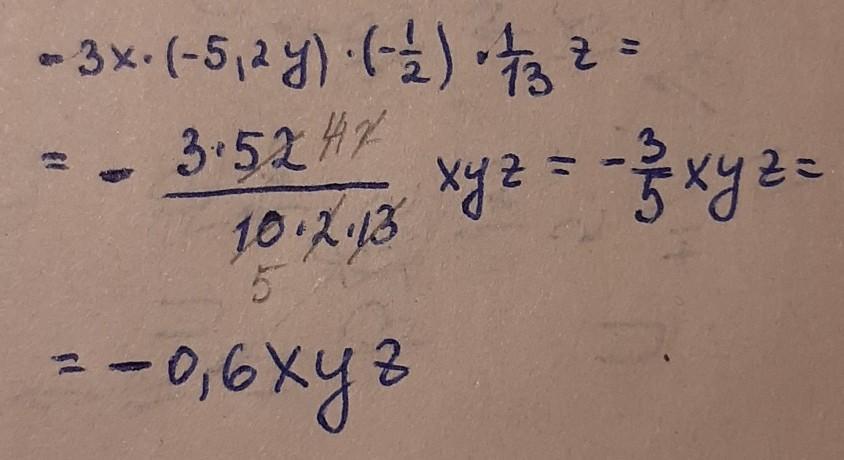 -3x·(-5,2y)·(-1/2)·1/13 z =
= - 3·52/10·2·13 xyz = -3/5 xyz =
4 2
5
= -0,6xyz